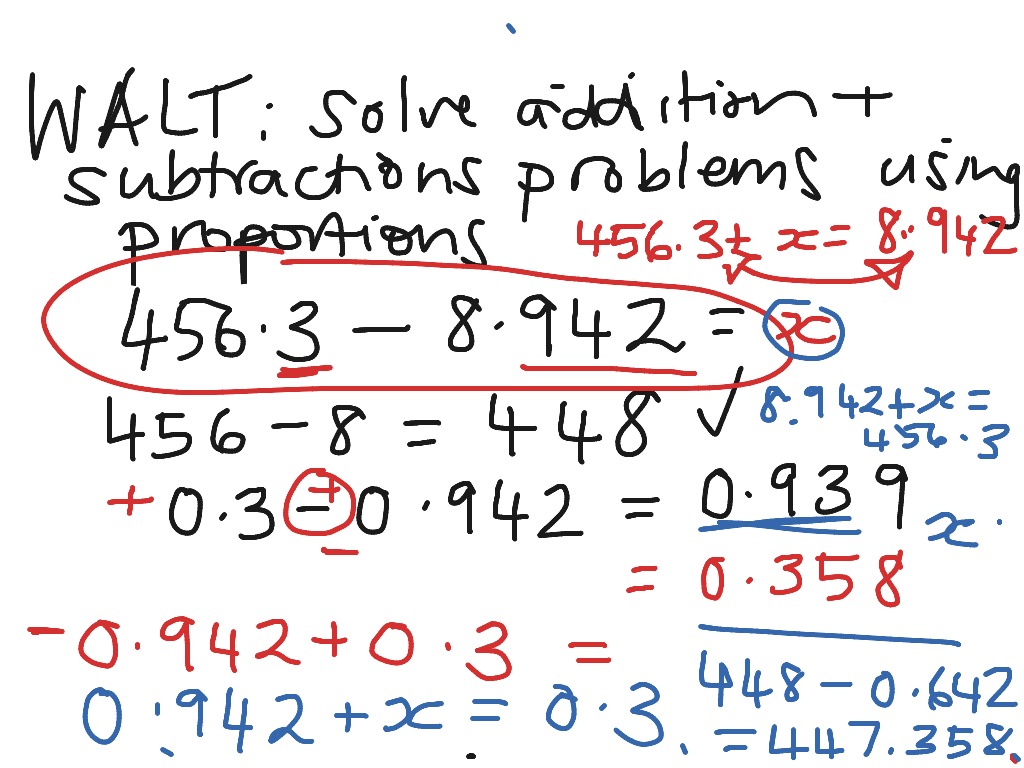 WALT: solve addition +
subtractions problems using
proportions
456.3 ± x = 8.942
456.3 - 8.942 = x
456 - 8 = 448 ✓
8.942 + x =
456.3
+ 0.3 - + 0.942 = 0.939
x
= 0.358
- 0.942 + 0.3 =
448 - 0.642
0.942 + x = 0.3.
= 447.358